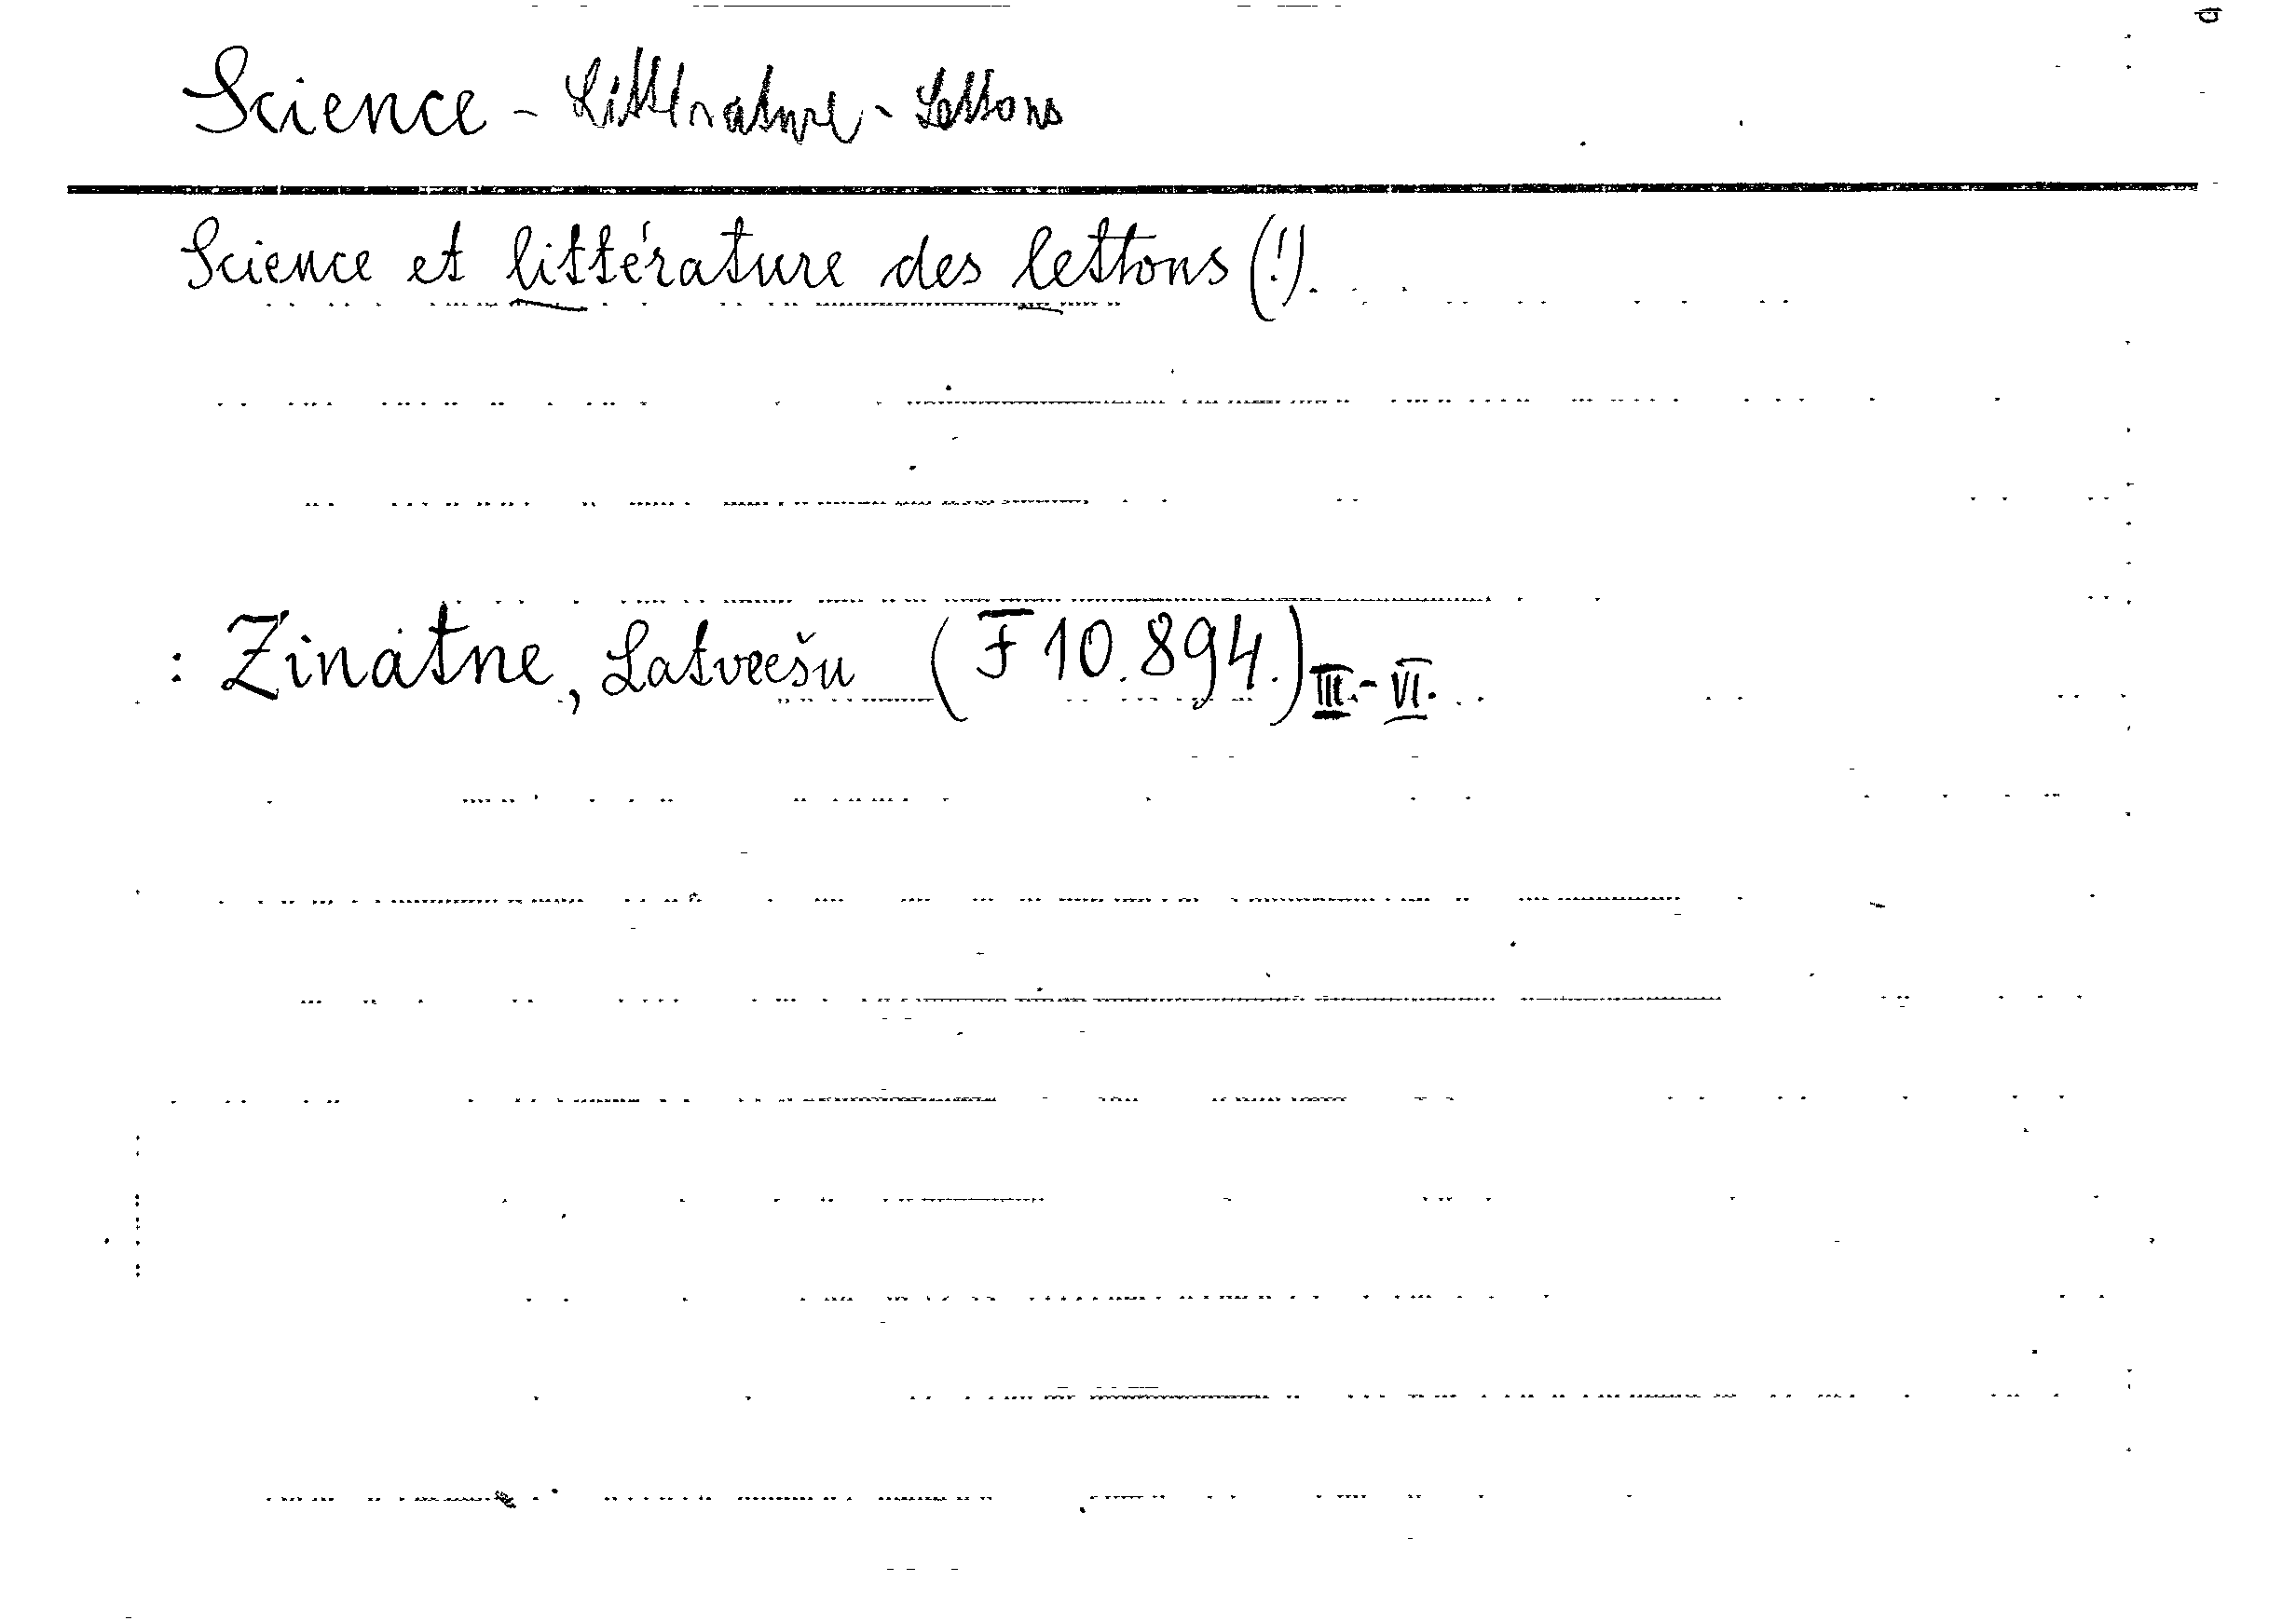 Science - Littérature - Lettons
Science et littérature des lettons (!).
: Zinátne, Latveešu (F 10.894.) III.-VI.